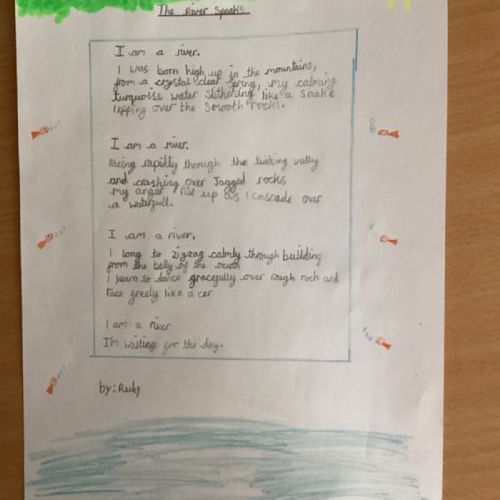 The River Speaks
I am a river.
I was born high up in the mountains,
from a crystal clear spring, my calming
turquoise water slithering like a snake
lapping over the smooth rocks.
I am a river.
Racing rapidly through the valley
and crashing over Jagged rocks
my anger rise up as I cascade over
a waterfall.
I am a river.
I long to zigzag calmly through building
from the belly of the ocean
I yearn to dance gracefully over rough rock and
race freely like a car
I am a river
I'm waiting for the day.
by: Ruby